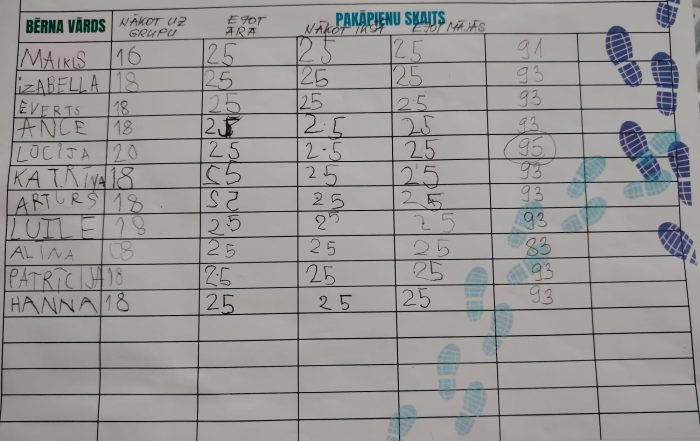 BĒRNA VĀRDS NĀKOT UZ GRUPU EJOT ĀRĀ PAKĀPIENU SKAITS NĀKOT IKŠĀ EJOT MĀJĀS
MAIKLS 16 25 25 25 91
IZABELLA 18 25 25 25 93
EVERTS 18 25 25 25 93
ANCE 18 25 25 25 93
LŪCIJA 20 25 25 25 95
KATRĪNA 18 25 25 25 93
ARTURS 18 25 25 25 93
LUĪLE 18 25 25 25 93
ALINA 08 25 25 25 83
PATRĪCIJA 18 25 25 25 93
HANNA 18 25 25 25 93